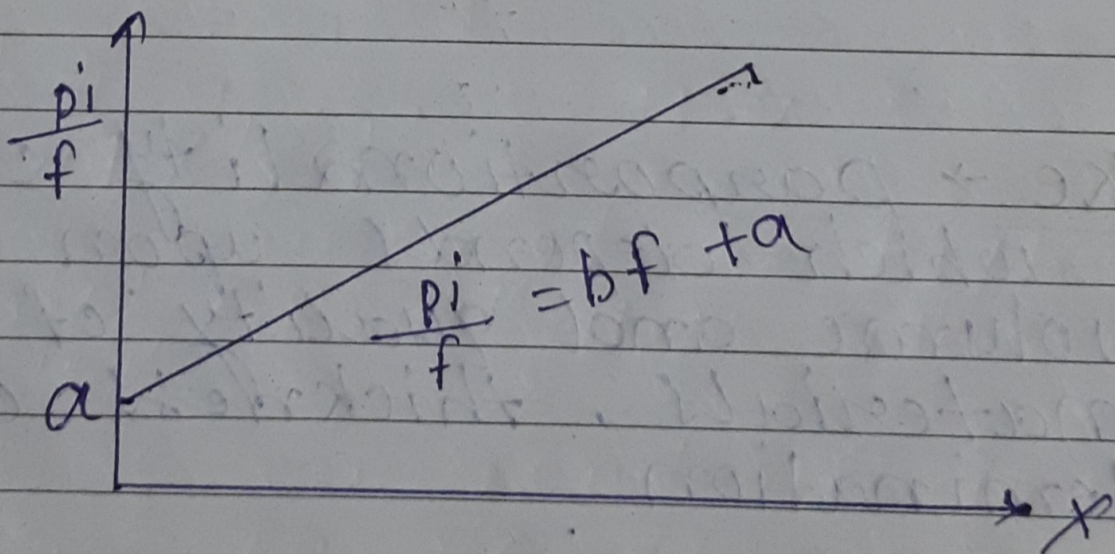 pi
f
pi
f = bf + a
a
x